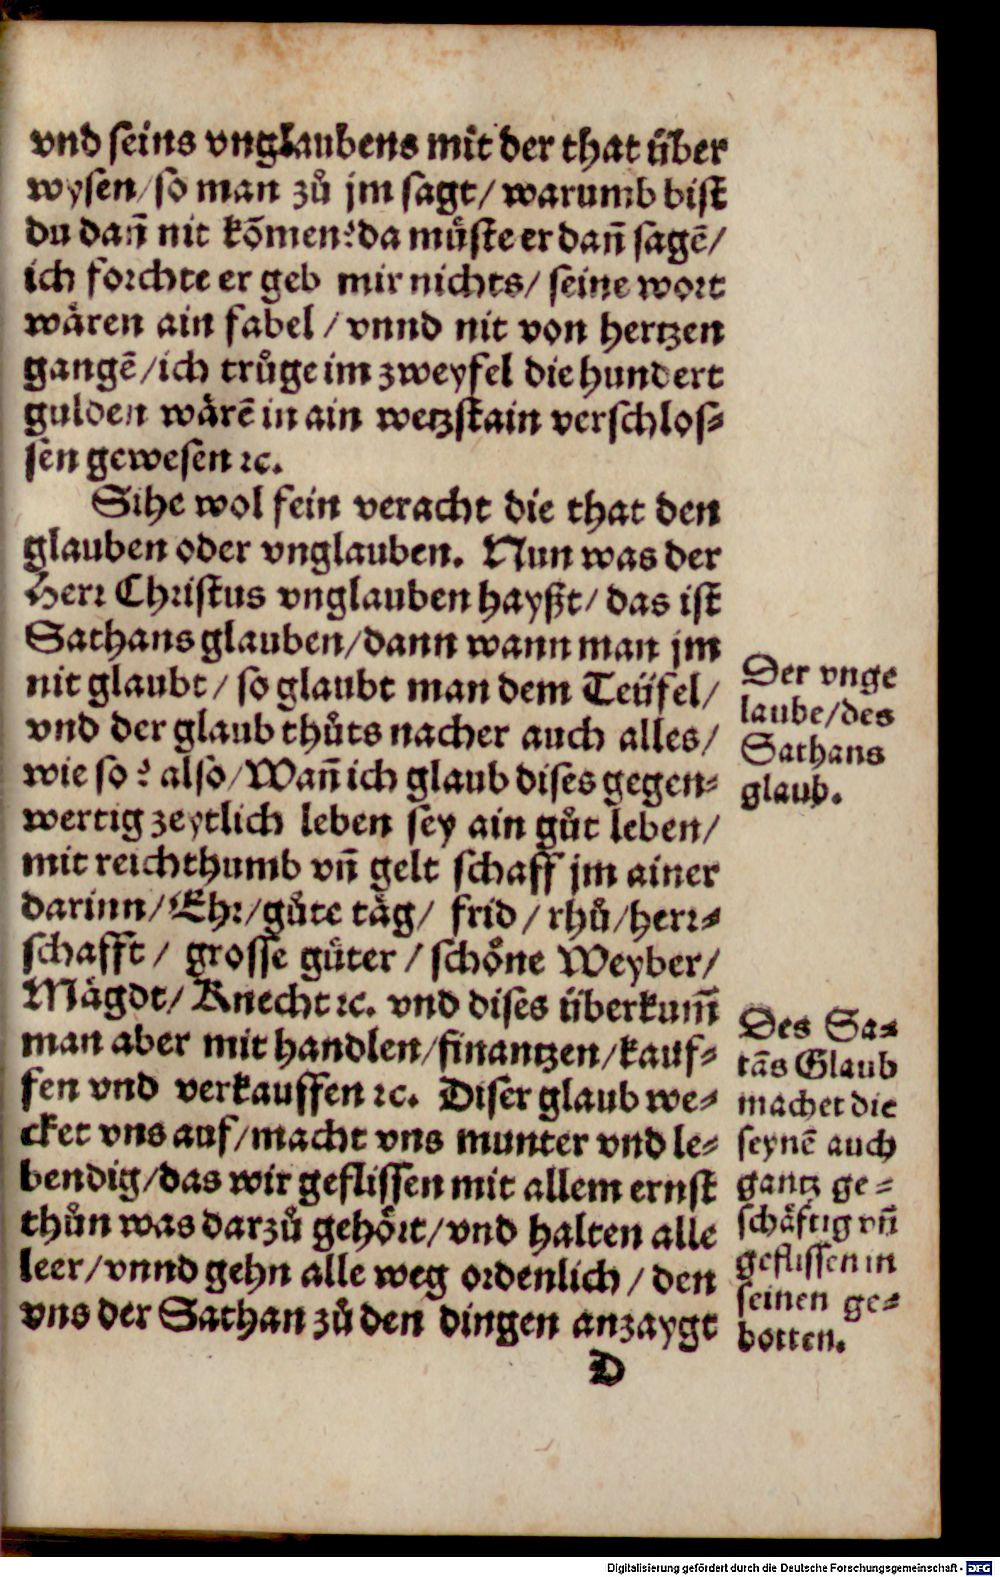 vnd seins vnglaubens mit der that über
wysen/so man zů jm sagt/ warumb bist
du dañ nit kõmen? da müste er dañ sagẽ/
ich forchte er geb mir nichts/ seine wort
wären ain fabel / vnnd nit von hertzen
gangẽ/ich trůge im zweyfel die hundert
gulden wärẽ in ain wetzstain verschlos⸗
sen gewesen ꝛc.
Sihe wol fein veracht die that den
glauben oder vnglauben. Nun was der
Herr Christus vnglauben hayßt/ das ist
Sathans glauben/dann wann man jm
nit glaubt / so glaubt man dem Teüfel/
vnd der glaub thůts nacher auch alles/
wie so? also/Wañ ich glaub dises gegen⸗
wertig zeytlich leben sey ain gůt leben/
mit reichthumb vñ gelt schaff jm ainer
darinn/Ehr/gůte täg/ frid / rhů/herr⸗
schafft / grosse güter / schöne Weyber/
Mägdt/ Knecht ꝛc. vnd dises überkum̃
man aber mit handlen/finantzen/kauf⸗
fen vnd verkauffen ꝛc. Diser glaub we⸗
cket vns auf/macht vns munter vnd le⸗
bendig/das wir geflissen mit allem ernst
thůn was darzů gehört/vnd halten alle
leer/vnnd gehn alle weg ordenlich / den
vns der Sathan zů den dingen anzaygt
D
Der vnge
laube/des
Sathans
glaub.
Des Sa⸗
tãs Glaub
machet die
seynẽ auch
gantz ge⸗
schäftig vñ
geflissen in
seinen ge⸗
botten.
Digitalisierung gefördert durch die Deutsche Forschungsgemeinschaft - DFG